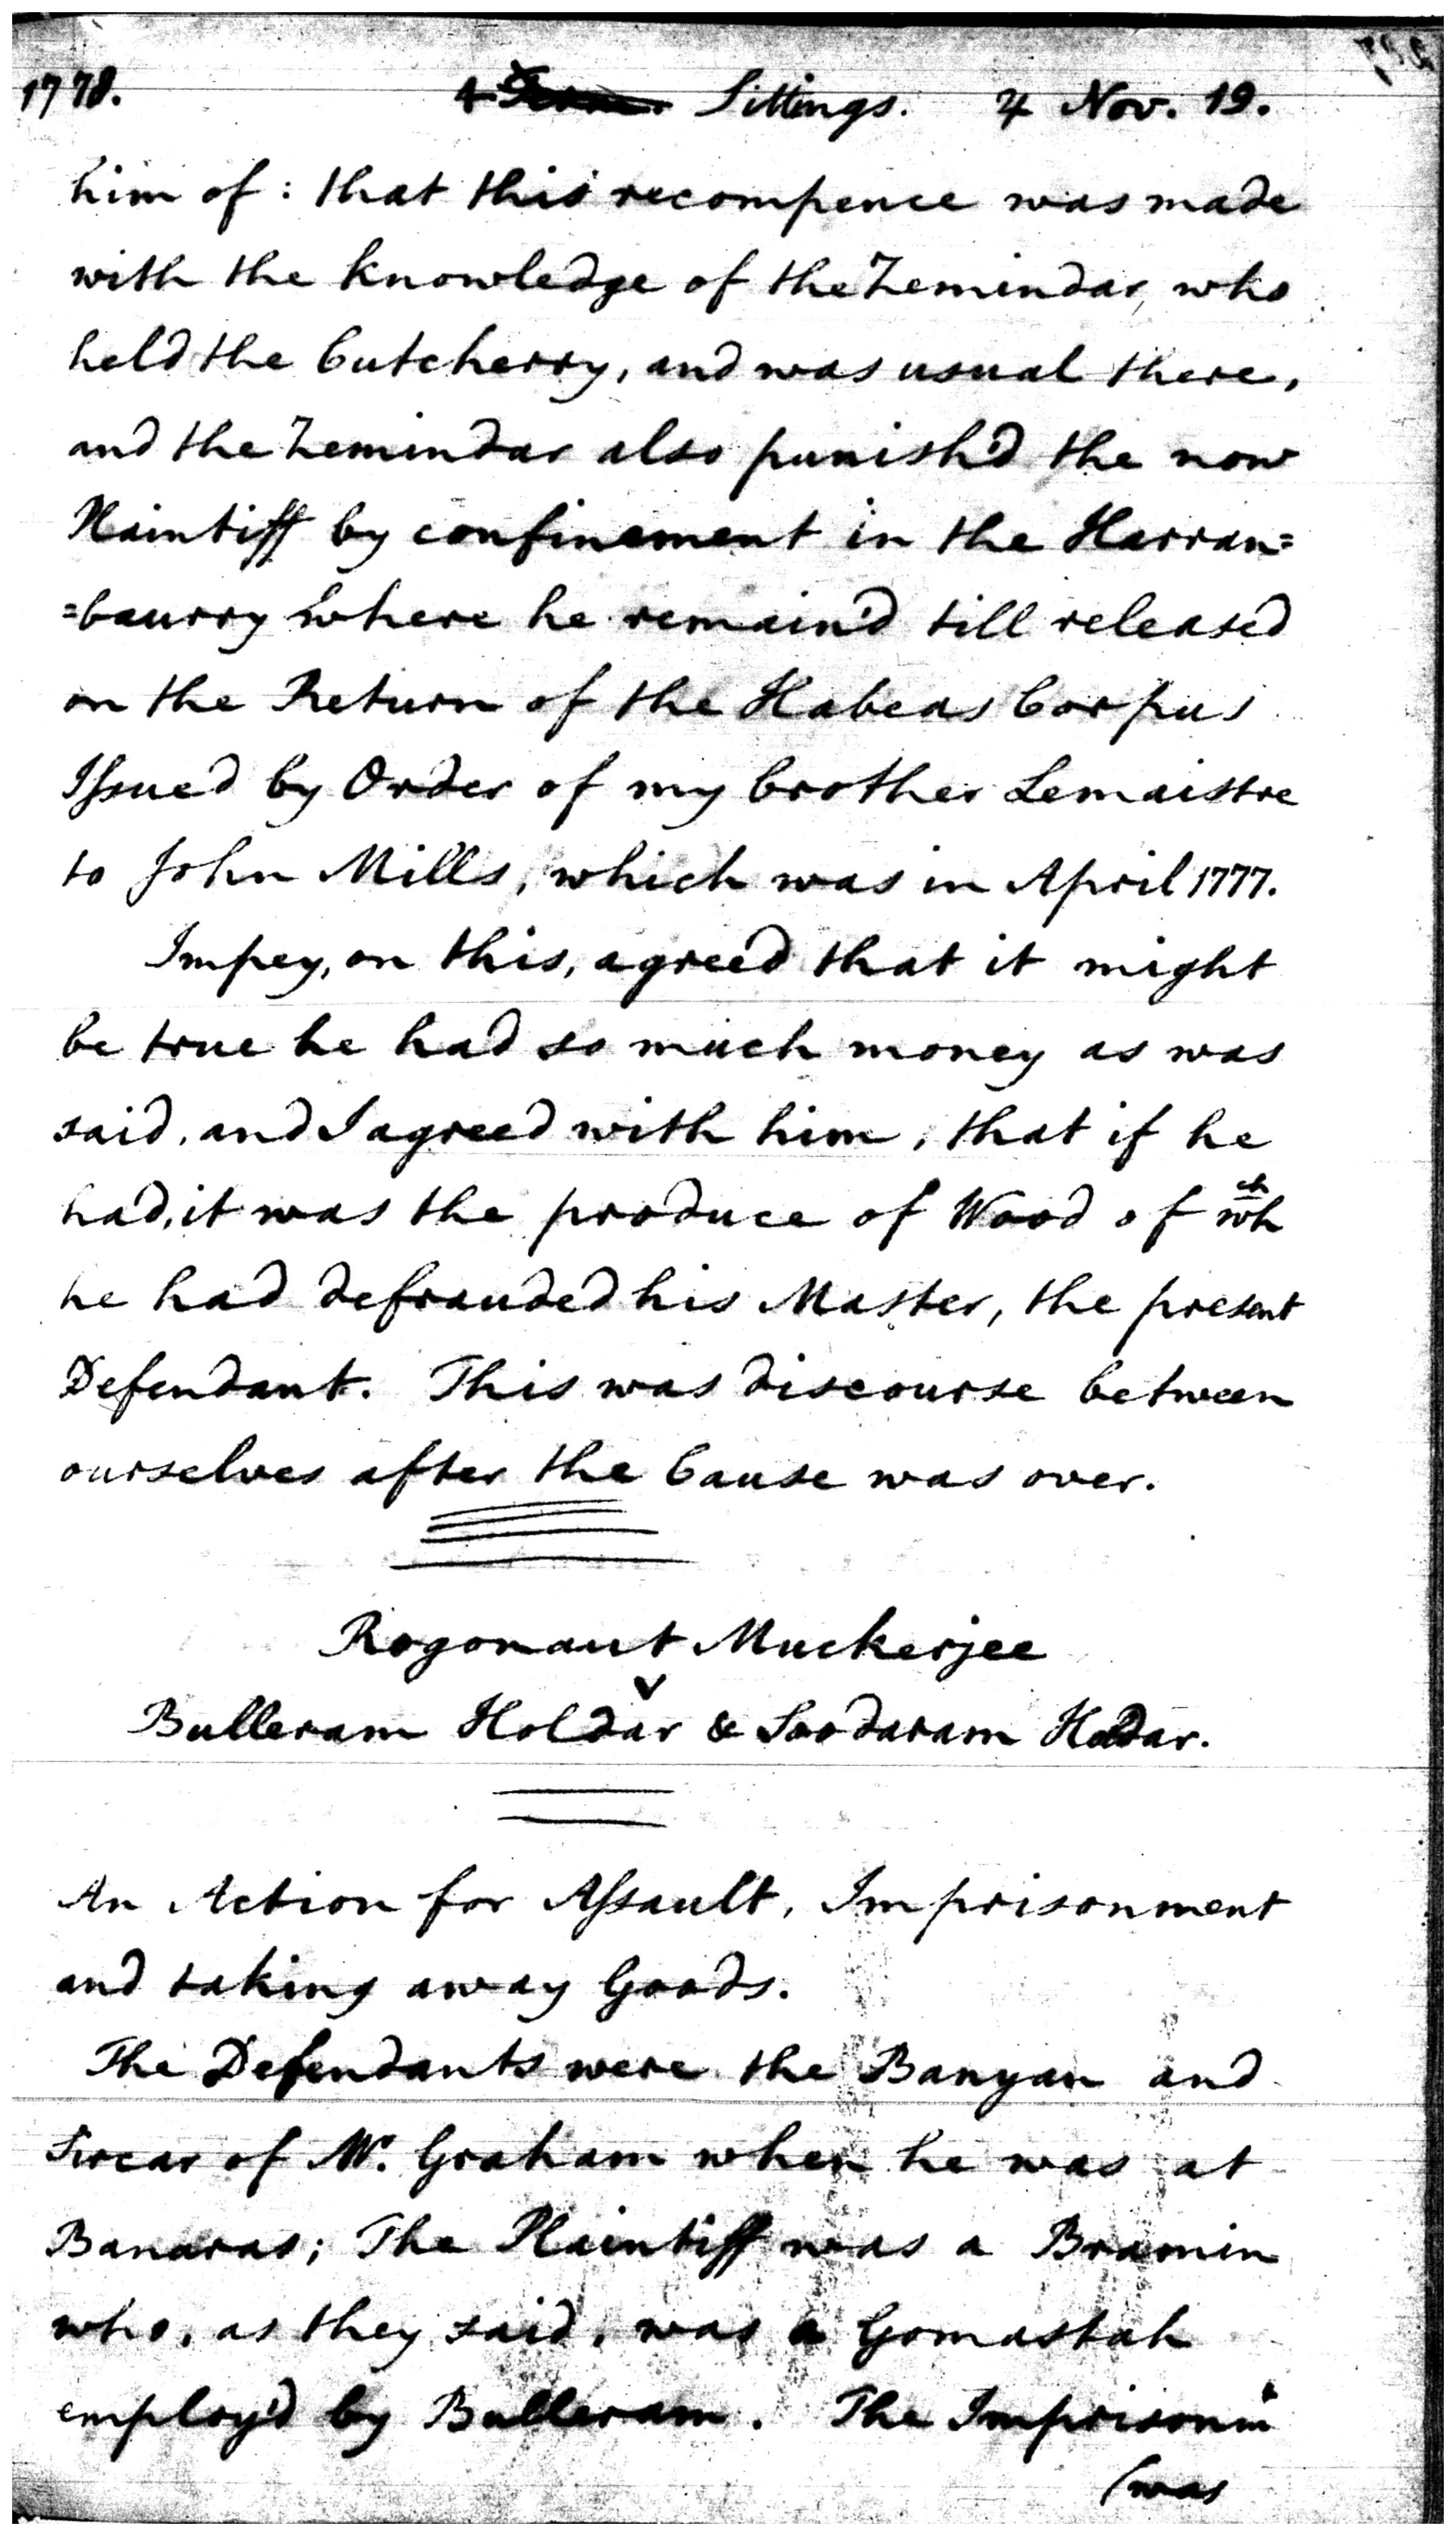 1778. 4 Term. Sittings. ♃ Nov. 19.
him of: that this recompence was made
with the knowledge of the Zemindar, who
held the Cutcherry, and was usual there,
and the Zemindar also punish'd the now
Plaintiff by confinement in the Harran=
=baurry where he remain'd till released
on the Return of the Habeas Corpus
Issued by Order of my brother Lemaistre
to John Mills, which was in April 1777.
Impey, on this, agreed that it might
be true he had so much money as was
said, and I agreed with him, that if he
had, it was the produce of Wood of wh^ch
he had defrauded his Master, the present
Defendant. This was discourse between
ourselves after the Cause was over.
Rogonaut Muckerjee
v
Bulleram Holdar & Soodaram Holdar.
An Action for Assault, Imprisonment
and taking away Goods.
The Defendants were the Banyan and
Sircar of Mr. Graham when he was at
Banaras; The Plaintiff was a Bramin
who, as they said, was a Gomastah
employ'd by Bulleram. The Imprisonm^t
(was